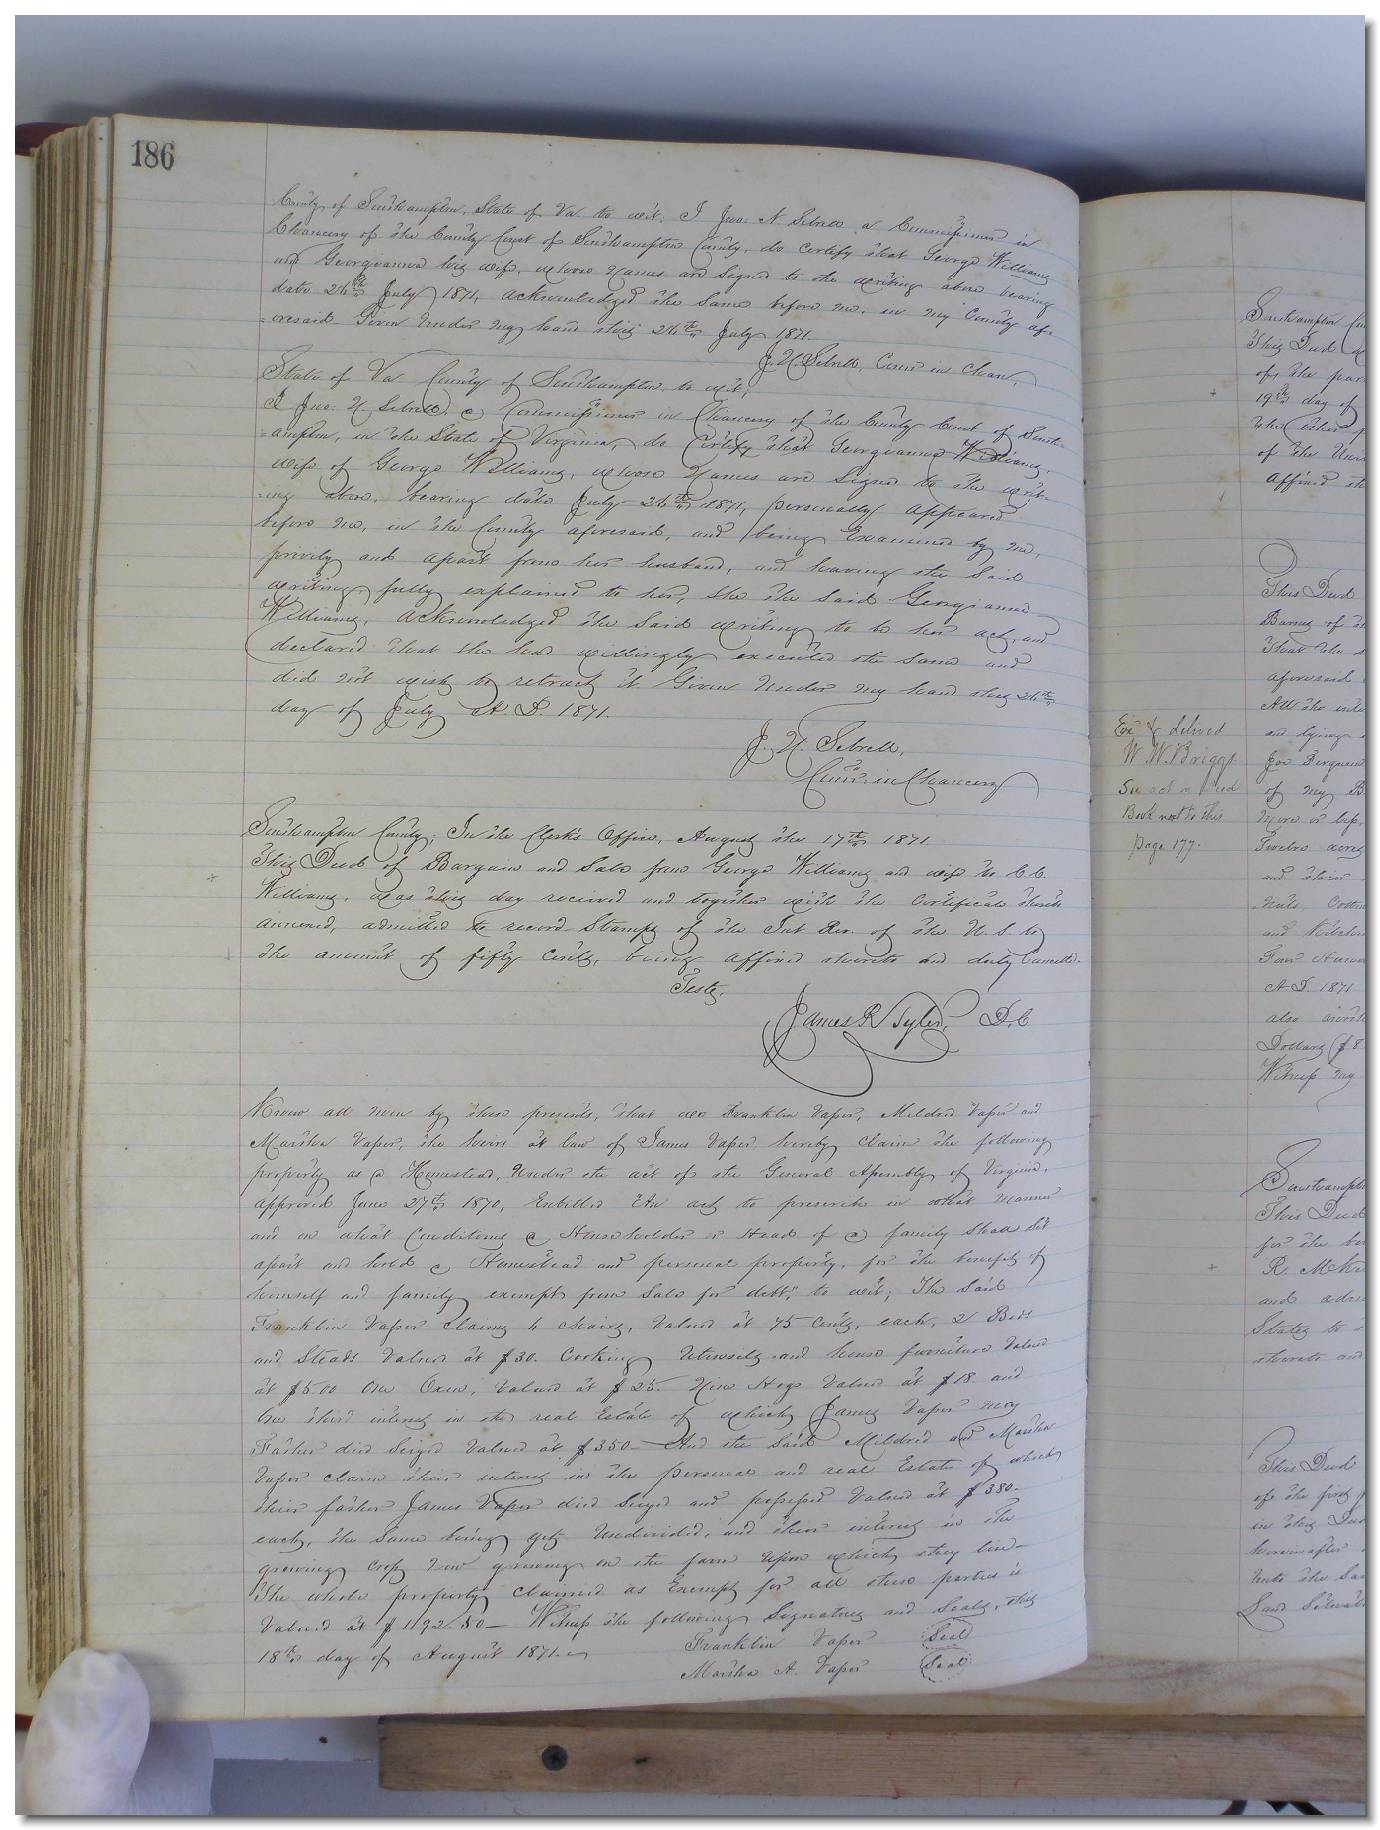 186
County of Southampton, State of Va to wit; I Jno. N Sebrell a Commissioner in
Chancery of the County Court of Southampton County, do certify that George Williams
and Georgianna his wife, whose names are signed to the writing above bearing
date 26th July 1871, acknowledged the same before me, in my County af-
=oresaid Given under my hand this 26th July 1871.
J. N. Sebrell, Comr in Chan,
State of Va County of Southampton to wit;
I Jno. N. Sebrell, a Commissioner in Chancery of the County Court of South-
=ampton, in the State of Virginia, do certify that Georgianna Williams,
wife of George Williams, whose names are signed to the writ-
-ing above, bearing date July 26th 1871, personally appeared
before me, in the County aforesaid, and being Examined by me,
privily and apart from her husband, and having the said
writing fully explained to her, she the said Georgianna
Williams, acknowledged the said writing to be her act, and
declared that she had willingly executed the same and
did not wish to retract it. Given under my hand this 26th
day of July A. D. 1871.
J. N. Sebrell,
Comr. in Chancery
Southampton County; In the Clerks Office, August the 17th 1871.
This Deed of Bargain and Sale from George Williams and wife to C. C.
Williams, was this day received and together with the Certificate thereto
annexed, admitted to record. Stamps of the Int Rev. of the U. S. to
the amount of fifty Cents, being affixed thereto and duly Cancelled.
Teste,
James R Tyler, D. C
Know all men by these presents, that we Franklin Vaper, Mildred Vaper and
Martha Vaper, the heirs at law of James Vaper hereby claim the following
property as a Homestead, under the act of the General Assembly of Virginia,
approved June 27th 1870, Entitled An act to prescribe in what manner
and on what Conditions a Householder or Head of a family shall set
apart and hold a Homestead and personal property, for the benefit of
himself and family exempt from Sale for debt; to wit; The said
Franklin Vaper claims 6 chairs, Valued at 75 Cents, each, 2 Beds
and Steads Valued at $30. Cooking Utensils and house furniture Valued
at $5.00 One Oxen, Valued at $25. Nine Hogs Valued at $18. and
One third interest in the real Estate of which James Vaper my
Father died Seized Valued at $350— And the said Mildred and Martha
Vaper claim their interest in the personal and real Estate of which
their father James Vaper died Seized and possessed Valued at $380—
each, the same being yet undivided, and their interest in the
growing crops now growing on the farm upon which they live—
The whole property claimed as Exempt for all these parties is
Valued at $1192.50— Witness the following Signatures and Seals, this
18th day of August 1871.
Franklin Vaper Seal
Martha A. Vaper Seal
Exd & Delived
W. W. Briggs
See act in Deed
Book next to this
page 177.
Southampton
This Deed
of the
19th day of
the
of the
affixed
This Deed
of
that the
aforesaid
All the
and lying
of my
more or less,
Twelve acres
and
and
Four
A. D. 1871
also
Dollars ($8
Witness my
Southampton
This Deed
for the
R.
and
States to
thereto and
This Deed
of the first
in this
hereinafter
unto the
Land